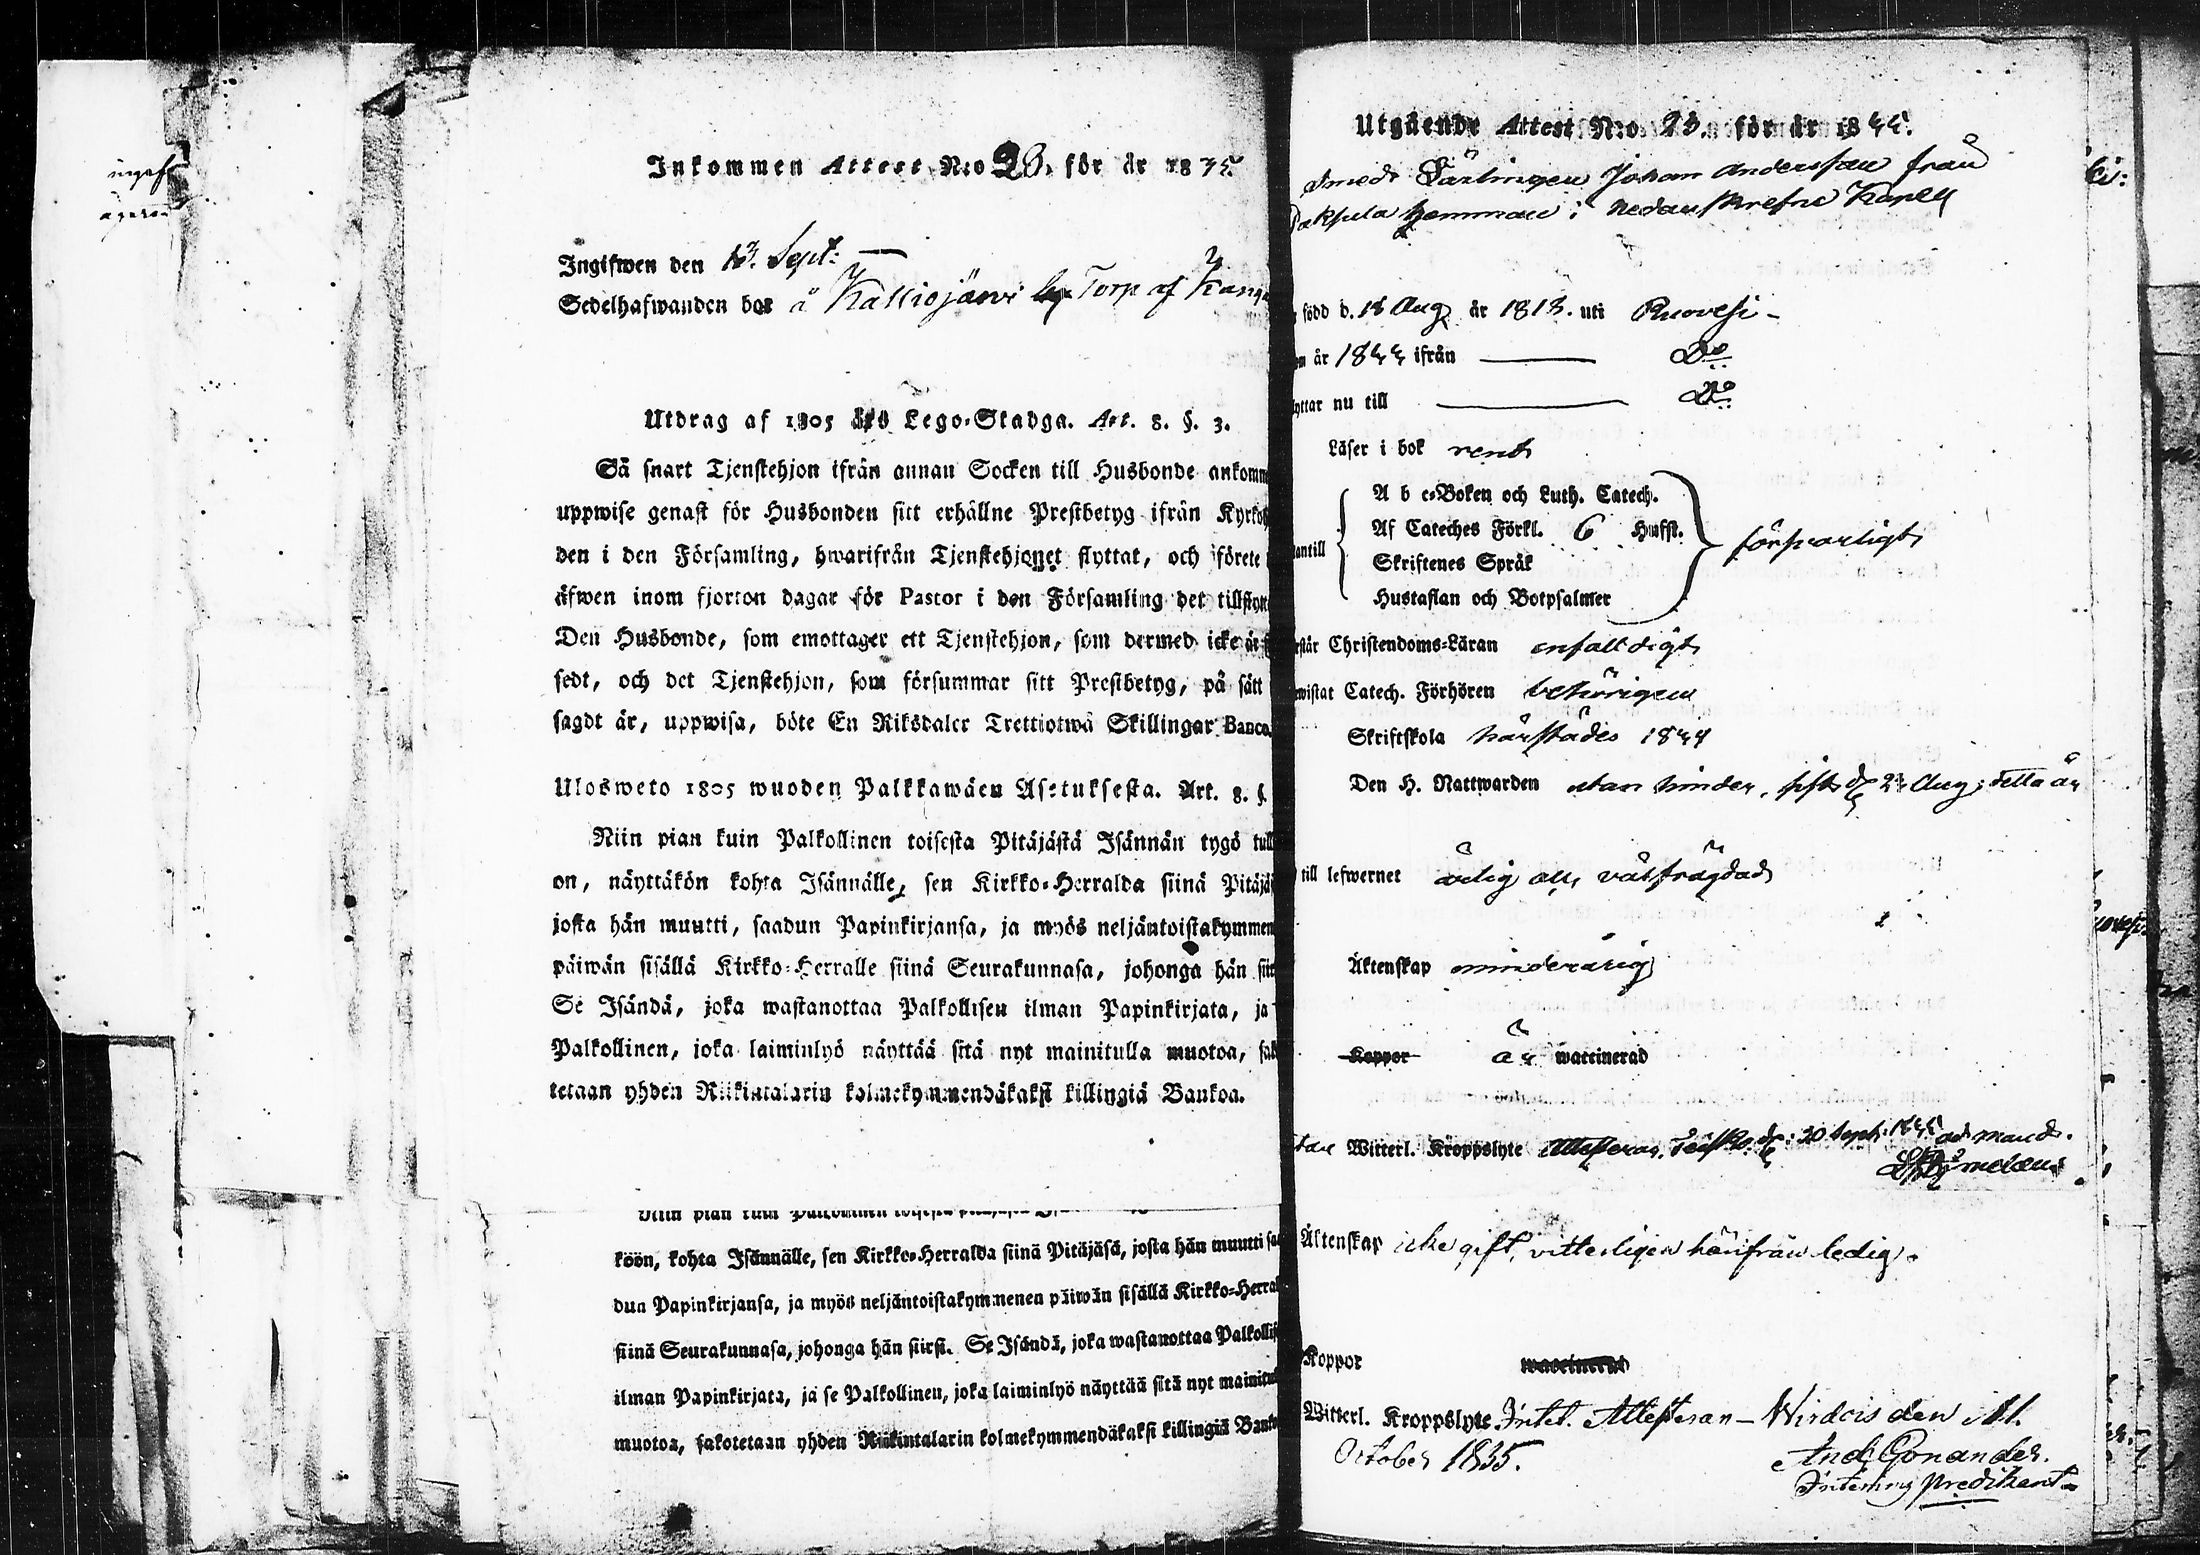 ingaf
Inkommen Attest N:o 23. för år 1835
Ingifwen den 13. Sept:
Sedelhafwanden bor å Kalliojärwi Torp af
Utdrag af 1805 års Lego-Stadga. Art. 8. §. 3.
Så snart Tjenstehjon ifrån annan Socken till Husbonde ankomm
uppwise genast för Husbonden sitt erhållne Prestbetyg ifrån Kyrko
den i den Församling, hwarifrån Tjenstehjonet flyttat, och förete
äfwen inom fjorton dagar för Pastor i den Församling det tillflytt
Den Husbonde, som emottager ett Tjenstehjon, som dermed icke är
sedt, och det Tjenstehjon, som försummar sitt Prestbetyg, på sätt
sagdt är, uppwisa, böte En Riksdaler Trettiotwå Skillingar Banco.
Ulosweto 1805 wuoden Palkkawäen Asetuksesta. Art. 8. §.
Niin pian kuin Palkollinen toisesta Pitäjästä Isännän tygö tull
on, näyttäkön kohta Isännälle, sen Kirkko-Herralda siinä Pitäjä
josta hän muutti, saadun Papinkirjansa, ja myös neljäntoistakymmen
päiwän sisällä Kirkko-Herralle siinä Seurakunnasa, johonga hän siir
Se Isändä, joka wastanottaa Palkollisen ilman Papinkirjata, ja
Palkollinen, joka laiminlyö näyttää sitä nyt mainitulla muotoa, sak
tetaan yhden Riikintalarin kolmekymmendäkaksi killingiä Bankoa.
Niin pian kuin Palkollinen
köön, kohta Isännälle, sen Kirkko-Herralda siinä Pitäjäsä, josta hän muutti saa
dun Papinkirjansa, ja myös neljäntoistakymmenen päiwän sisällä Kirkko-Herral
siinä Seurakunnasa, johonga hän siirsi. Se Isändä, joka wastanottaa Palkollis
ilman Papinkirjata, ja se Palkollinen, joka laiminlyö näyttää sitä nyt mainitul
muotoa, sakotetaan yhden Riikintalarin kolmekymmendäkaksi killingiä Banko
Utgående Attest N:o 23. för år 1845.
Smeds Lärlingen Johan Andersson från
Hemman i nedanskrefne Kapell
född d. 18 Aug. år 1818. uti Ruovesi -
år 1844 ifrån Do
yttar nu till Do
Läser i bok rent
A b c-Boken och Luth. Catech.
Af Cateches Förkl. 6 Hufst.
Skriftenes Språk
Hustaflan och Botpsalmer
antill
försvarligt
står Christendoms-Läran enfalldigt
wistat Catech. Förhören behörigen
Skriftskola härstädes 1844
Den H. Nattwarden utan hinder, sist d. 24 Aug. detta år
till lefwernet ärlig och välfrägdad
Äktenskap minderårig
Koppor är waccinerad
utan Witterl. Kroppslyte Attesteras, d. 20 Sept. 1845 ad mand.
Äktenskap icke gift, vitterligen härifrån ledig.
Koppor waccinerad
Witterl. Kroppslyte Intet. Attesteras - Wirdois den 11.
October 1835.
And. Gonander.
Interims predikant.